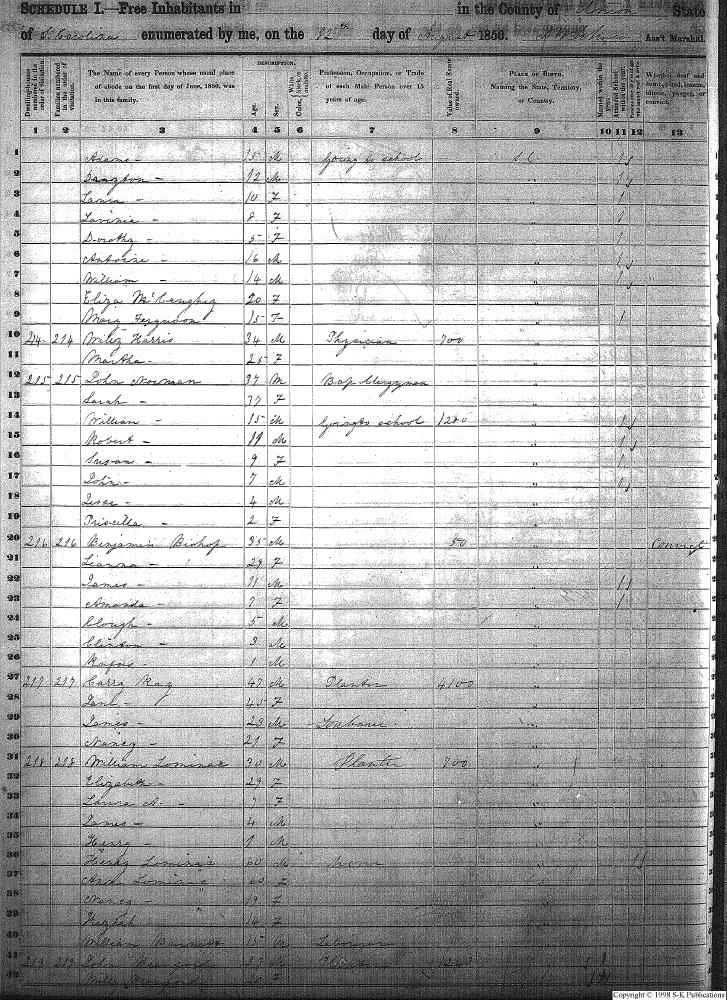 SCHEDULE I.—Free Inhabitants in in the County of State
of S. Carolina enumerated by me, on the 12th day of August 1850. Ass't Marshal.
DESCRIPTION.
Dwelling-houses numbered in the order of visitation.
Families numbered in the order of visitation.
The Name of every Person whose usual place of abode on the first day of June, 1850, was in this family.
Age.
Sex.
Color, White, black, or mulatto.
Profession, Occupation, or Trade of each Male Person over 15 years of age.
Value of Real Estate owned.
PLACE OF BIRTH, Naming the State, Territory, or Country.
Married within the year.
Attended School within the year.
Whether deaf and dumb, blind, insane, idiotic, pauper, or convict.
1 2 3 4 5 6 7 8 9 10 11 12 13
1 Adams — 15 M Going to school S C 1
2 Drayton — 12 M 1
3 10 F 1
4 Lavinia — 8 F 1
5 Dorothy — 5 F 1
6 Antoine — 16 M 1
7 William — 14 M
8 Eliza 20 F
9 Mary Ferguson 15 F 1
10 214 214 Wiley Harris 34 M Physician 700 "
11 Martha — 25 F "
12 215 215 John Norman 37 M Bap Clergyman "
13 Sarah — 37 F "
14 William — 15 M Going to school 1200 " 1
15 Robert — 11 M " 1
16 Susan — 9 F " 1
17 John — 7 M " 1
18 Jesse — 4 M "
19 Priscilla — 2 F "
20 216 216 Benjamin Bishop 35 M 50 " Convict
21 29 F "
22 James — 11 M " 1
23 Amanda — 7 F " 1
24 Clough — 5 M "
25 Clinton — 3 M "
26 Rufus — 1 M "
27 217 217 Ray 47 M Planter 4100 "
28 45 F "
29 James — 23 M Labourer "
30 Nancy — 21 F "
31 218 218 William Lominac 30 M Planter 700 "
32 Elizabeth — 29 F "
33 Laura A. — 7 F "
34 James — 4 M "
35 Henry — 1 M "
36 Henry Lominac 60 M None "
37 Ann Lominac 60 F "
38 Nancy — 19 F "
39 Keziah — 14 F "
40 William 15 M Labourer "
41 219 219 John M Planter "
42 F
Copyright © 1998 S-K Publications